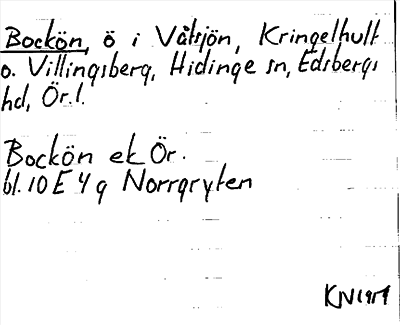 Bockön, ö i Våtsjön, Kringelhult
o. Villingsberg, Hidinge sn, Edsbergs
hd, Ör.l.
Bockön ek Ör.
bl. 10 E 4 g Norrgryten